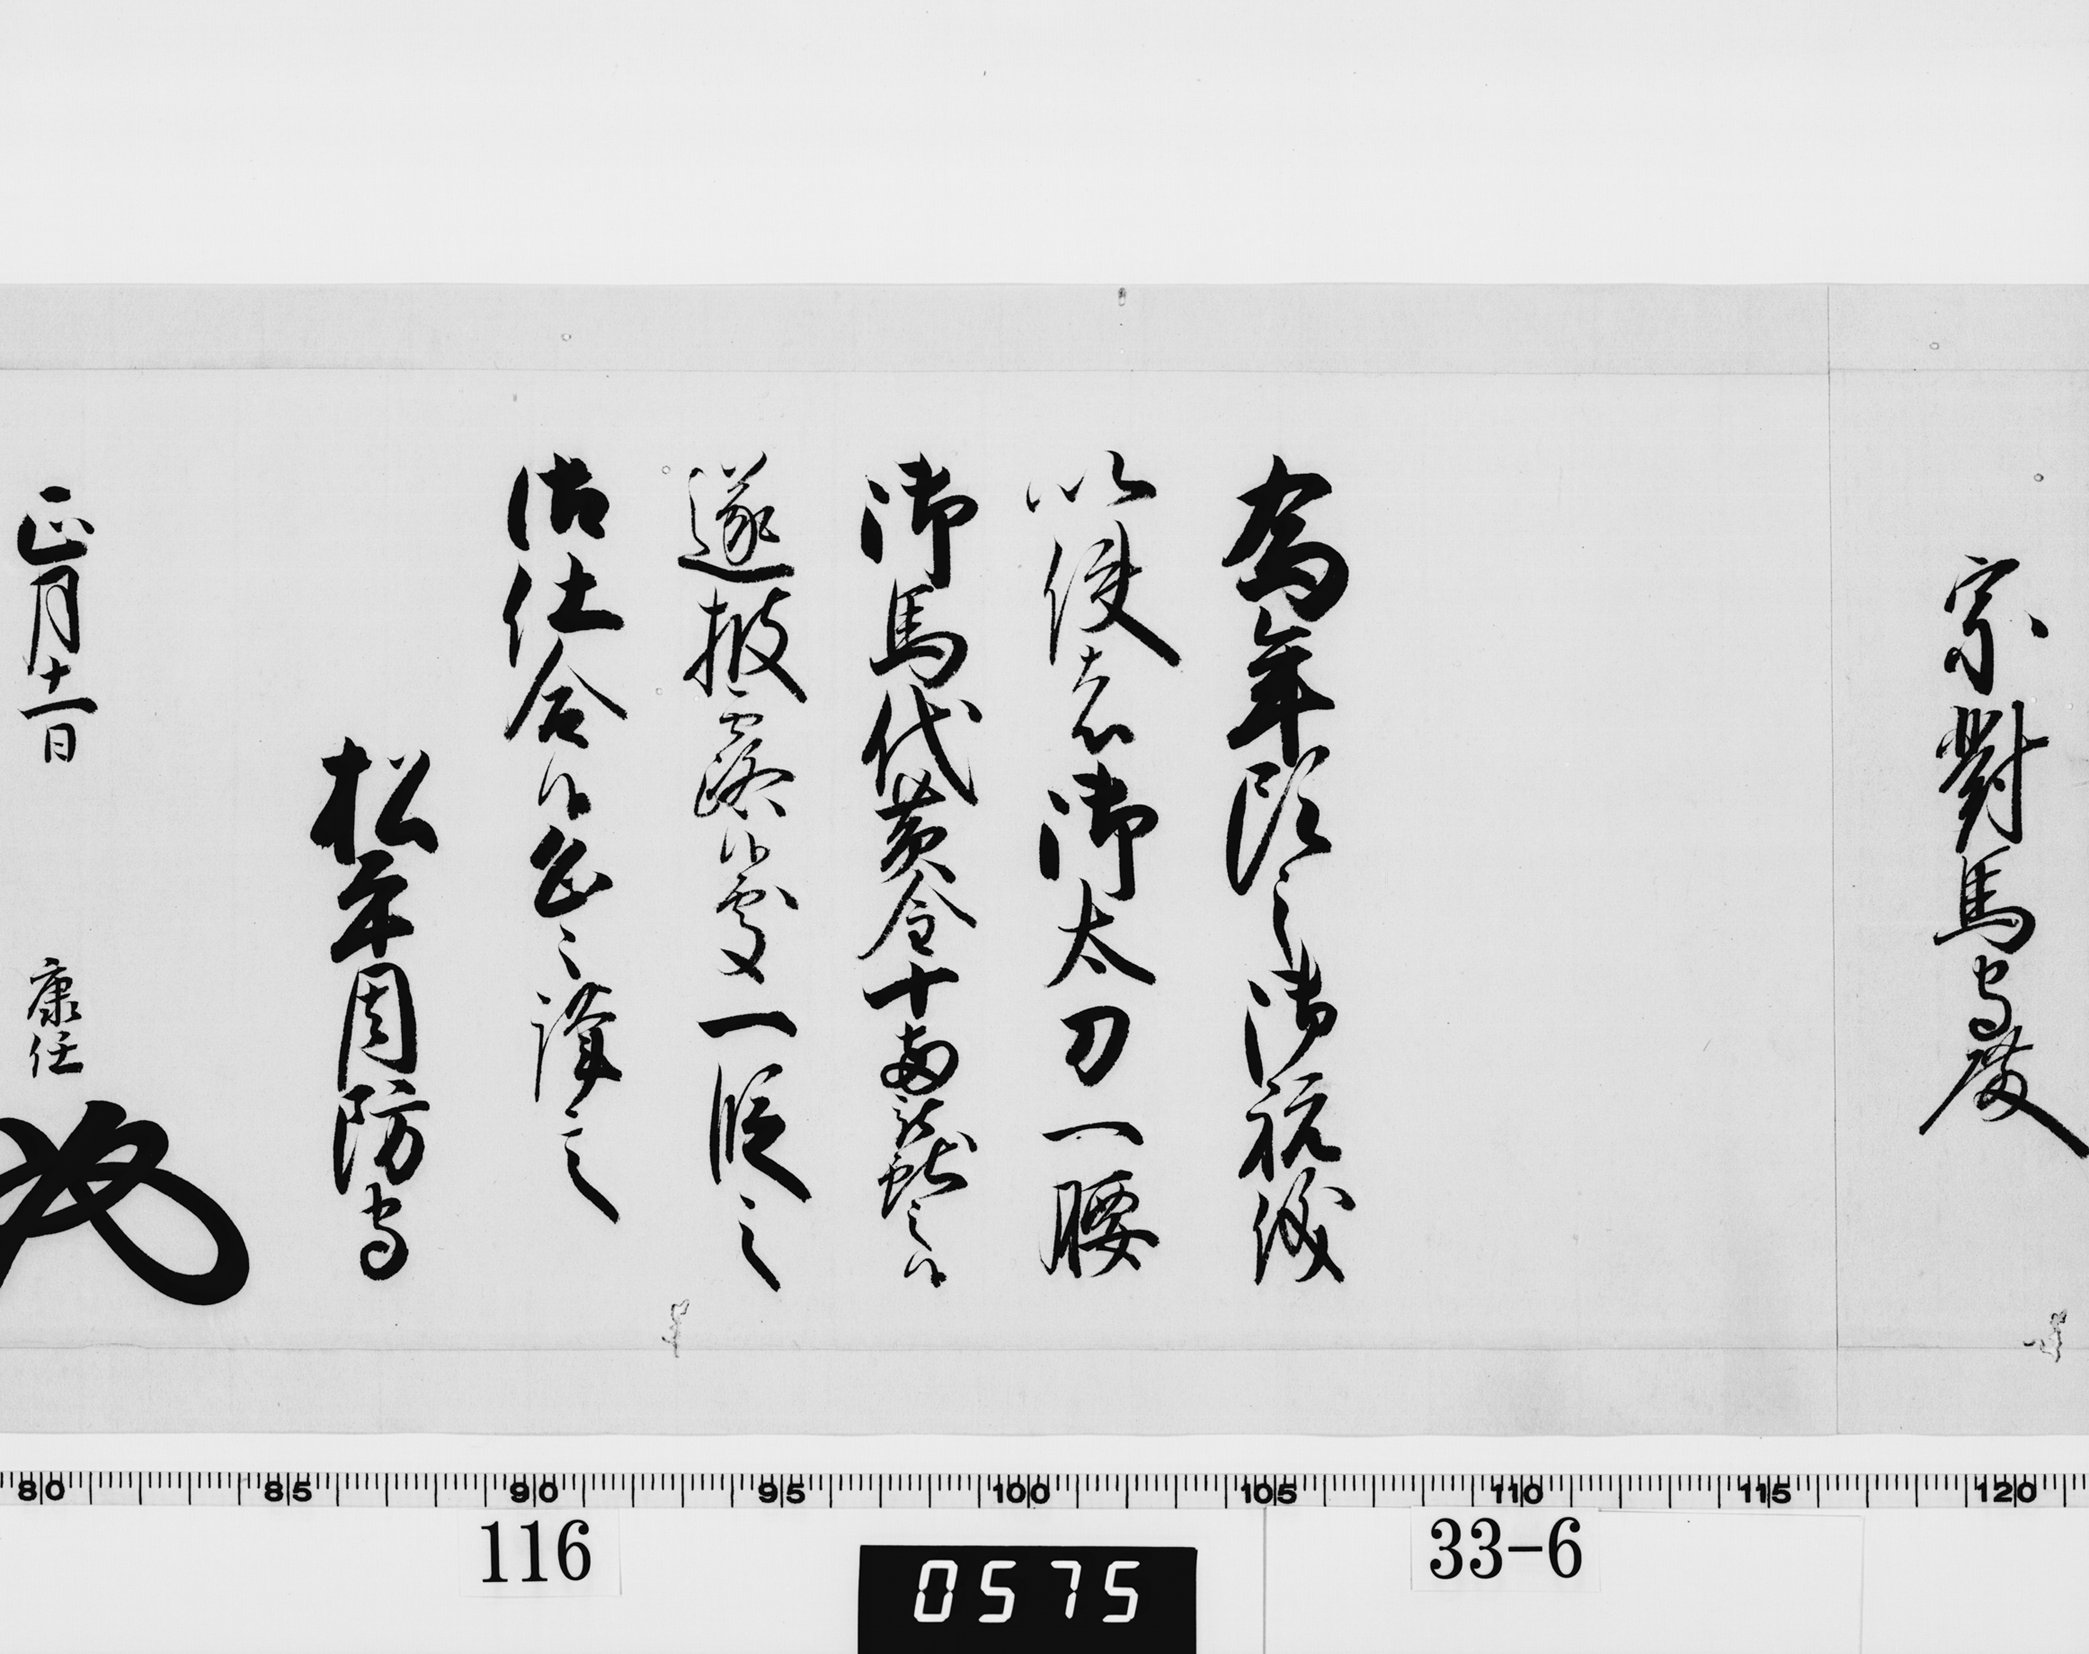 宗對馬守殿
為年頭之御祝儀
以使者御太刀一腰
御馬代黄金十両被獻之候
遂披露候處一段之
御仕合候恐々謹言
松平周防守
正月十一日 康任
80 85 90 95 100 105 110 115 120
116
0575
33-6